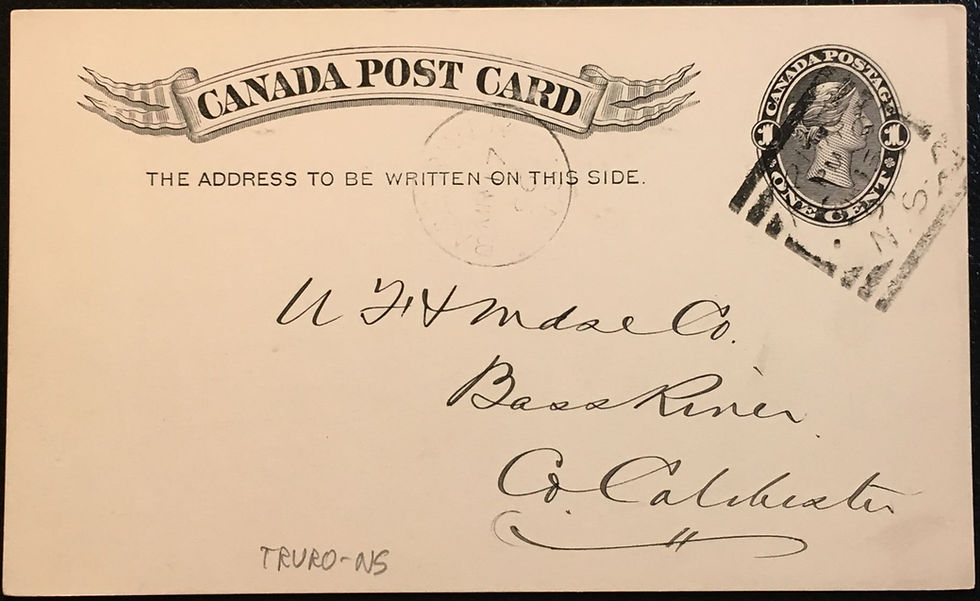 CANADA POST CARD
CANADA POSTAGE
1 1
ONE CENT
THE ADDRESS TO BE WRITTEN ON THIS SIDE.
N.S.
U F & Mdse Co.
Bass River
Co. Colchester
TRURO-NS